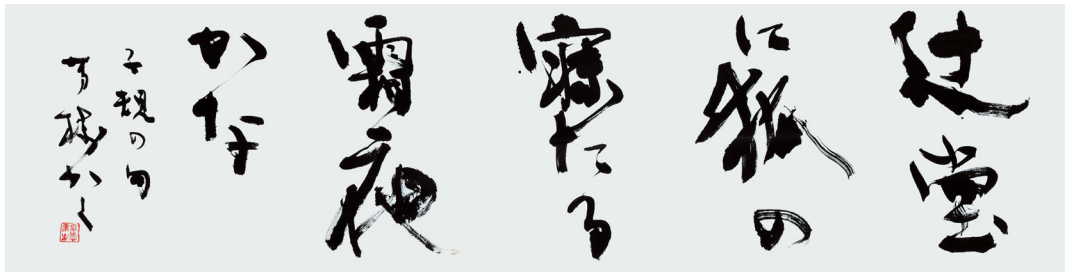 辻堂
に狐の
寐たる
霜夜
かな
子規の句
芳燐かく